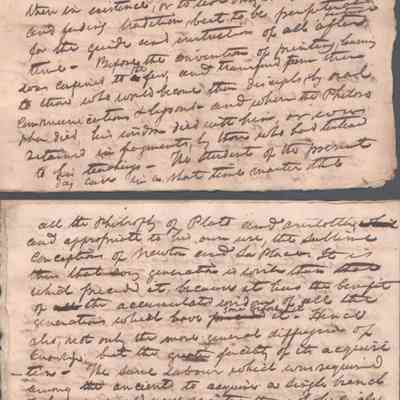 then in existence, or to
and fading tradition, next to be perpetuated
for the guide and instruction of all after
time - Before the invention of printing learning
was confined to the few, and transferred from them
to those who would become their disciples by oral
communications & lessons - and when the Philoso
pher died, his wisdom died with him, or was
retained in fragments, by those who had listened
to his teachings - The student of the present
day can in a short time master the
all the Philosophy of Plato and Aristotle, which
and appropriate to his own use, the sublime
conceptions of Newton and La Place. It is
thus that every generation is wiser than that
which preceded it, because it has the benefit
of all the accumulated wisdom of all the
generations which have gone before it - Hence
also, not only the more general diffusion of
knowledge, but the great facility of its acquire
ment. The same labour which was required
among the ancients to acquire a single branch